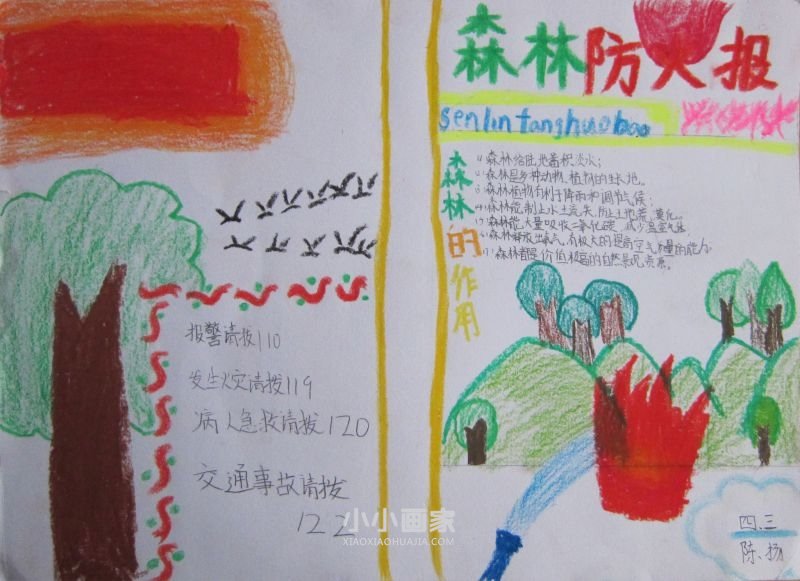 报警请拨110
发生火灾请拨119
病人急救请拨120
交通事故请拨
122
森林防火报
senlin fanghuobao
森林的作用
1.森林给陆地蓄积淡水；
2.森林是多种动物、植物的生长地。
3.森林植物有利于降雨和调节气候；
4.森林能制止水土流失，防止土地荒漠化。
5.森林能大量吸收二氧化碳，减少温室气体
6.森林释放出氧气，有极大的提高空气质量的能力
7.森林都是价值极富的自然景观资源。
四.三
陈扬
小小画家
XIAOXIAOHUAJIA.COM